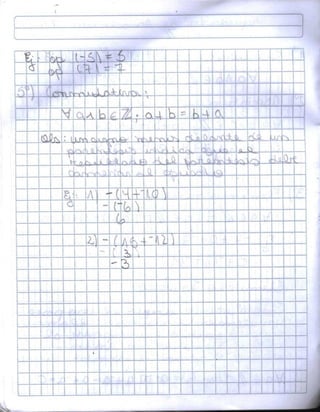 Ej: op (-5) = 5
op (7) = 7
5º) Conmutativa:
∀ a ∧ b ∈ ℤ; a + b = b + a
Obs: un signo menos delante de un
paréntesis indica que el
resultado del paréntesis debe
cambiar al opuesto
Ej: 1) -(4+-10)
-(-6)
6
2) -(15+-12)
-(3)
-3